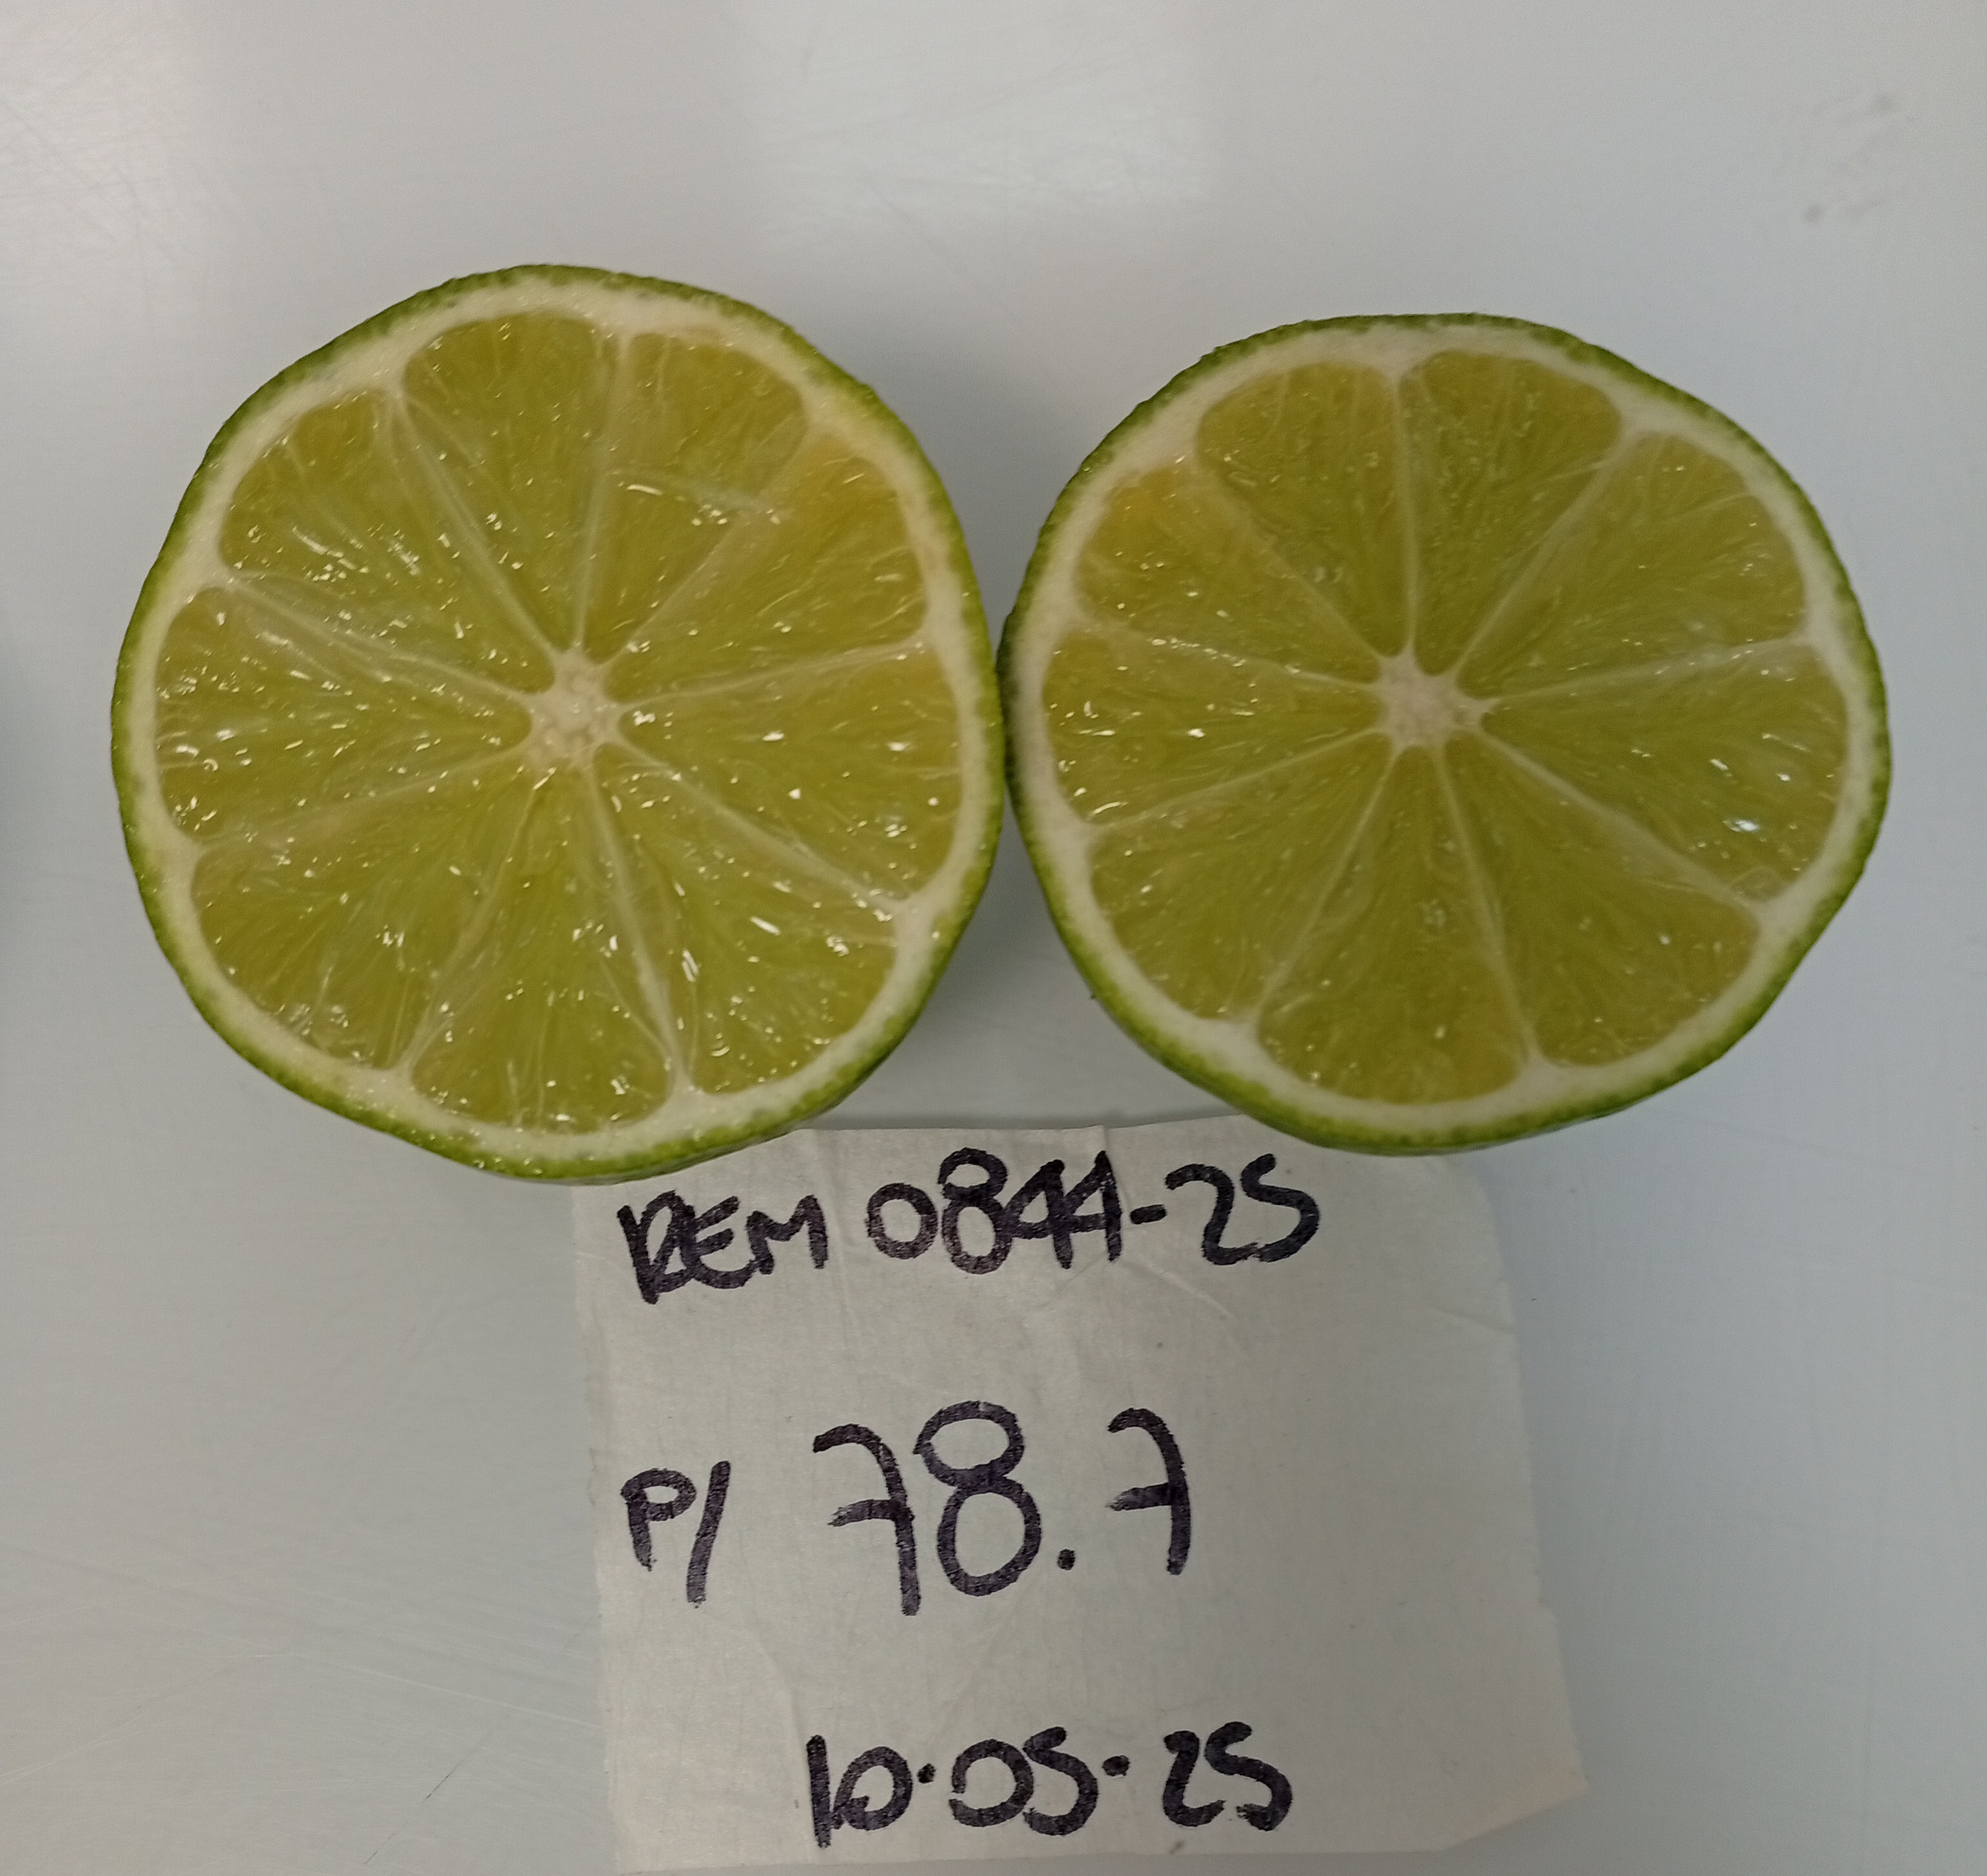 REM 0844-25
P/ 78.7
10·05·25